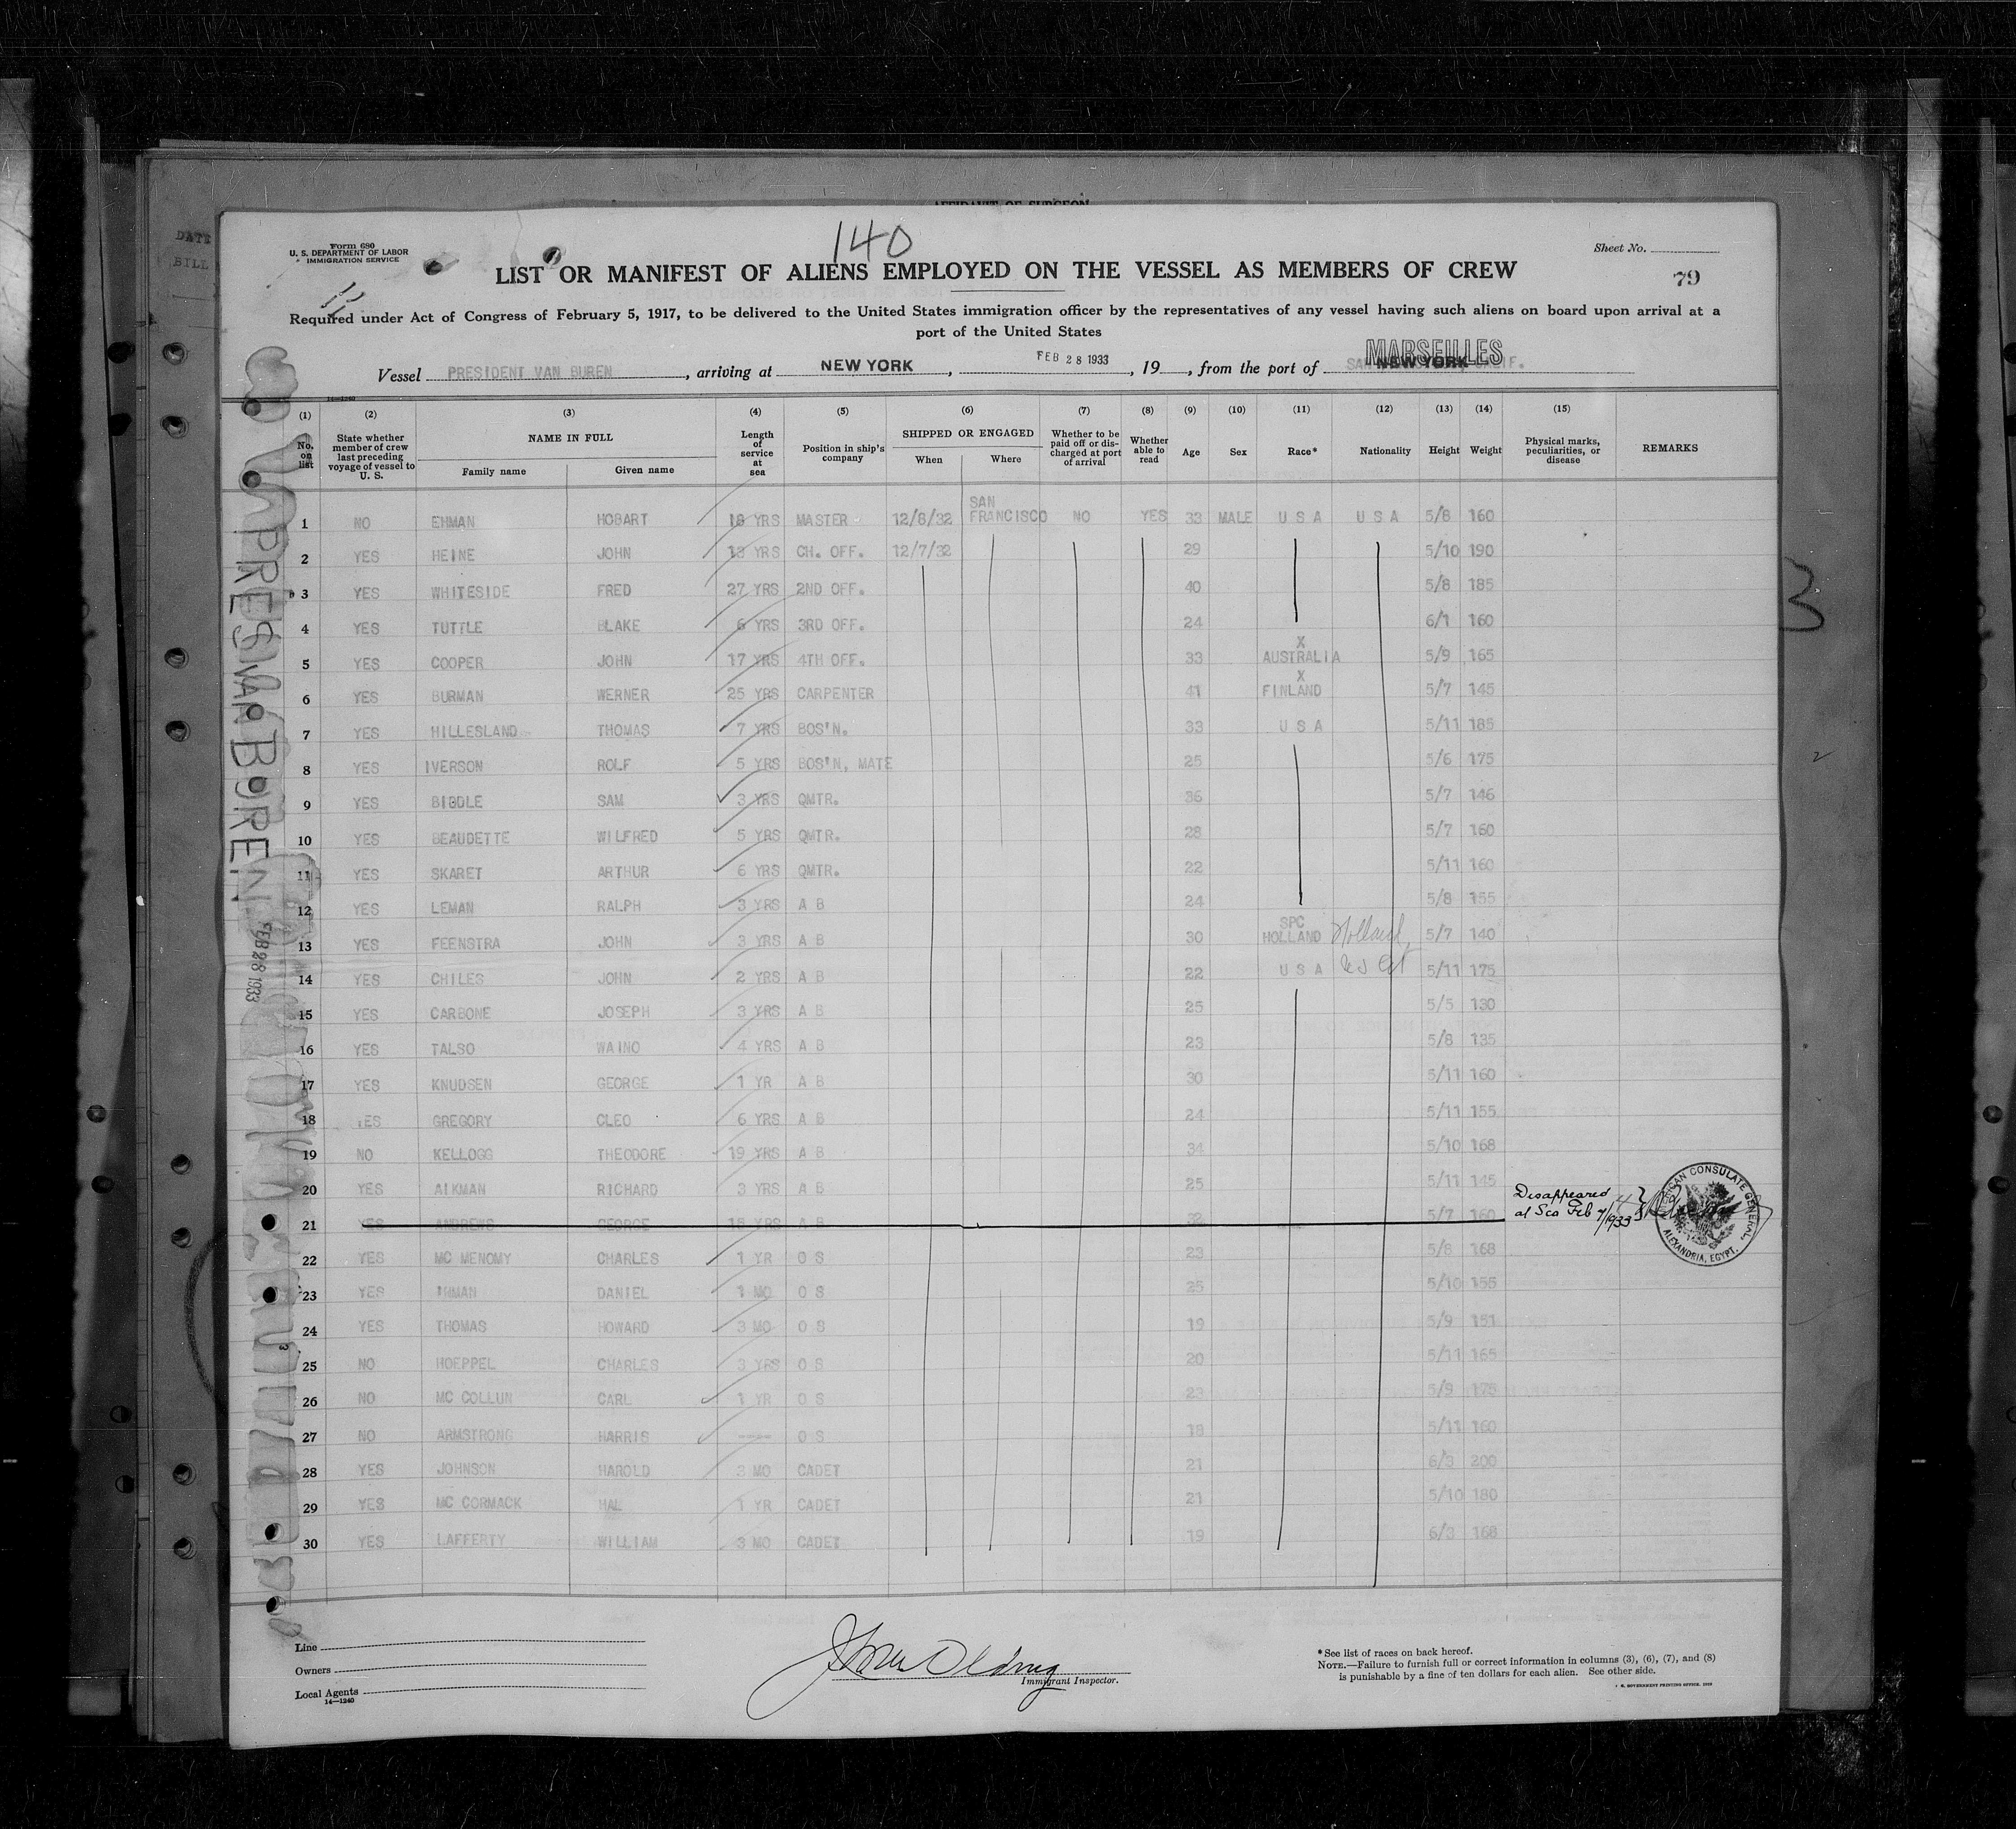 AFFIDAVIT OF SURGEON
DATE
BILL
Form 680
U. S. DEPARTMENT OF LABOR
IMMIGRATION SERVICE
140
Sheet No.
79
LIST OR MANIFEST OF ALIENS EMPLOYED ON THE VESSEL AS MEMBERS OF CREW
Required under Act of Congress of February 5, 1917, to be delivered to the United States immigration officer by the representatives of any vessel having such aliens on board upon arrival at a
port of the United States
Vessel PRESIDENT VAN BUREN, arriving at NEW YORK, FEB 28 1933, 19 , from the port of MARSEILLES NEW YORK
14—1240
(1) (2) (3) (4) (5) (6) (7) (8) (9) (10) (11) (12) (13) (14) (15)
No. on list State whether member of crew last preceding voyage of vessel to U. S. NAME IN FULL Family name Given name Length of service at sea Position in ship's company SHIPPED OR ENGAGED When Where Whether to be paid off or discharged at port of arrival Whether able to read Age Sex Race* Nationality Height Weight Physical marks, peculiarities, or disease REMARKS
1 NO EHMAN HOBART 16 YRS MASTER 12/6/32 SAN FRANCISCO NO YES 33 MALE U S A U S A 5/8 160
2 YES HEINE JOHN 13 YRS CH. OFF. 12/7/32 29 5/10 190
3 YES WHITESIDE FRED 27 YRS 2ND OFF. 40 5/8 185
4 YES TUTTLE BLAKE 6 YRS 3RD OFF. 24 6/1 160
5 YES COOPER JOHN 17 YRS 4TH OFF. 33 X AUSTRALIA 5/9 165
6 YES BURMAN WERNER 25 YRS CARPENTER 41 X FINLAND 5/7 145
7 YES HILLESLAND THOMAS 7 YRS BOS'N. 33 U S A 5/11 185
8 YES IVERSON ROLF 5 YRS BOS'N, MATE 25 5/6 175
9 YES BIDDLE SAM 3 YRS QMTR. 36 5/7 146
10 YES BEAUDETTE WILFRED 5 YRS QMTR. 28 5/7 160
11 YES SKARET ARTHUR 6 YRS QMTR. 22 5/11 160
12 YES LEMAN RALPH 3 YRS A B 24 5/8 155
13 YES FEENSTRA JOHN 3 YRS A B 30 SPC HOLLAND Holland 5/7 140
14 YES CHILES JOHN 2 YRS A B 22 U S A 5/11 175
15 YES CARBONE JOSEPH 3 YRS A B 25 5/5 130
16 YES TALSO WAINO 4 YRS A B 23 5/8 135
17 YES KNUDSEN GEORGE 1 YR A B 30 5/11 160
18 YES GREGORY CLEO 6 YRS A B 24 5/11 155
19 NO KELLOGG THEODORE 19 YRS A B 34 5/10 168
20 YES AIKMAN RICHARD 3 YRS A B 25 5/11 145
21 YES ANDREWS GEORGE 15 YRS A B 32 5/7 160 Disappeared at Sea Feb 4/1933
AMERICAN CONSULATE GENERAL, ALEXANDRIA, EGYPT.
22 YES MC MENOMY CHARLES 1 YR O S 23 5/8 168
23 YES INMAN DANIEL 1 MO O S 25 5/10 155
24 YES THOMAS HOWARD 3 MO O S 19 5/9 151
25 NO HOEPPEL CHARLES 3 YRS O S 20 5/11 165
26 NO MC COLLUN CARL 1 YR O S 23 5/9 175
27 NO ARMSTRONG HARRIS ---- O S 18 5/11 160
28 YES JOHNSON HAROLD 3 MO CADET 21 6/3 200
29 YES MC CORMACK HAL 1 YR CADET 21 5/10 180
30 YES LAFFERTY WILLIAM 3 MO CADET 19 6/3 168
PRES VAN BUREN
FEB 28 1933
Line
Owners
Local Agents
14—1240
Immigrant Inspector.
* See list of races on back hereof.
NOTE.—Failure to furnish full or correct information in columns (3), (6), (7), and (8)
is punishable by a fine of ten dollars for each alien. See other side.